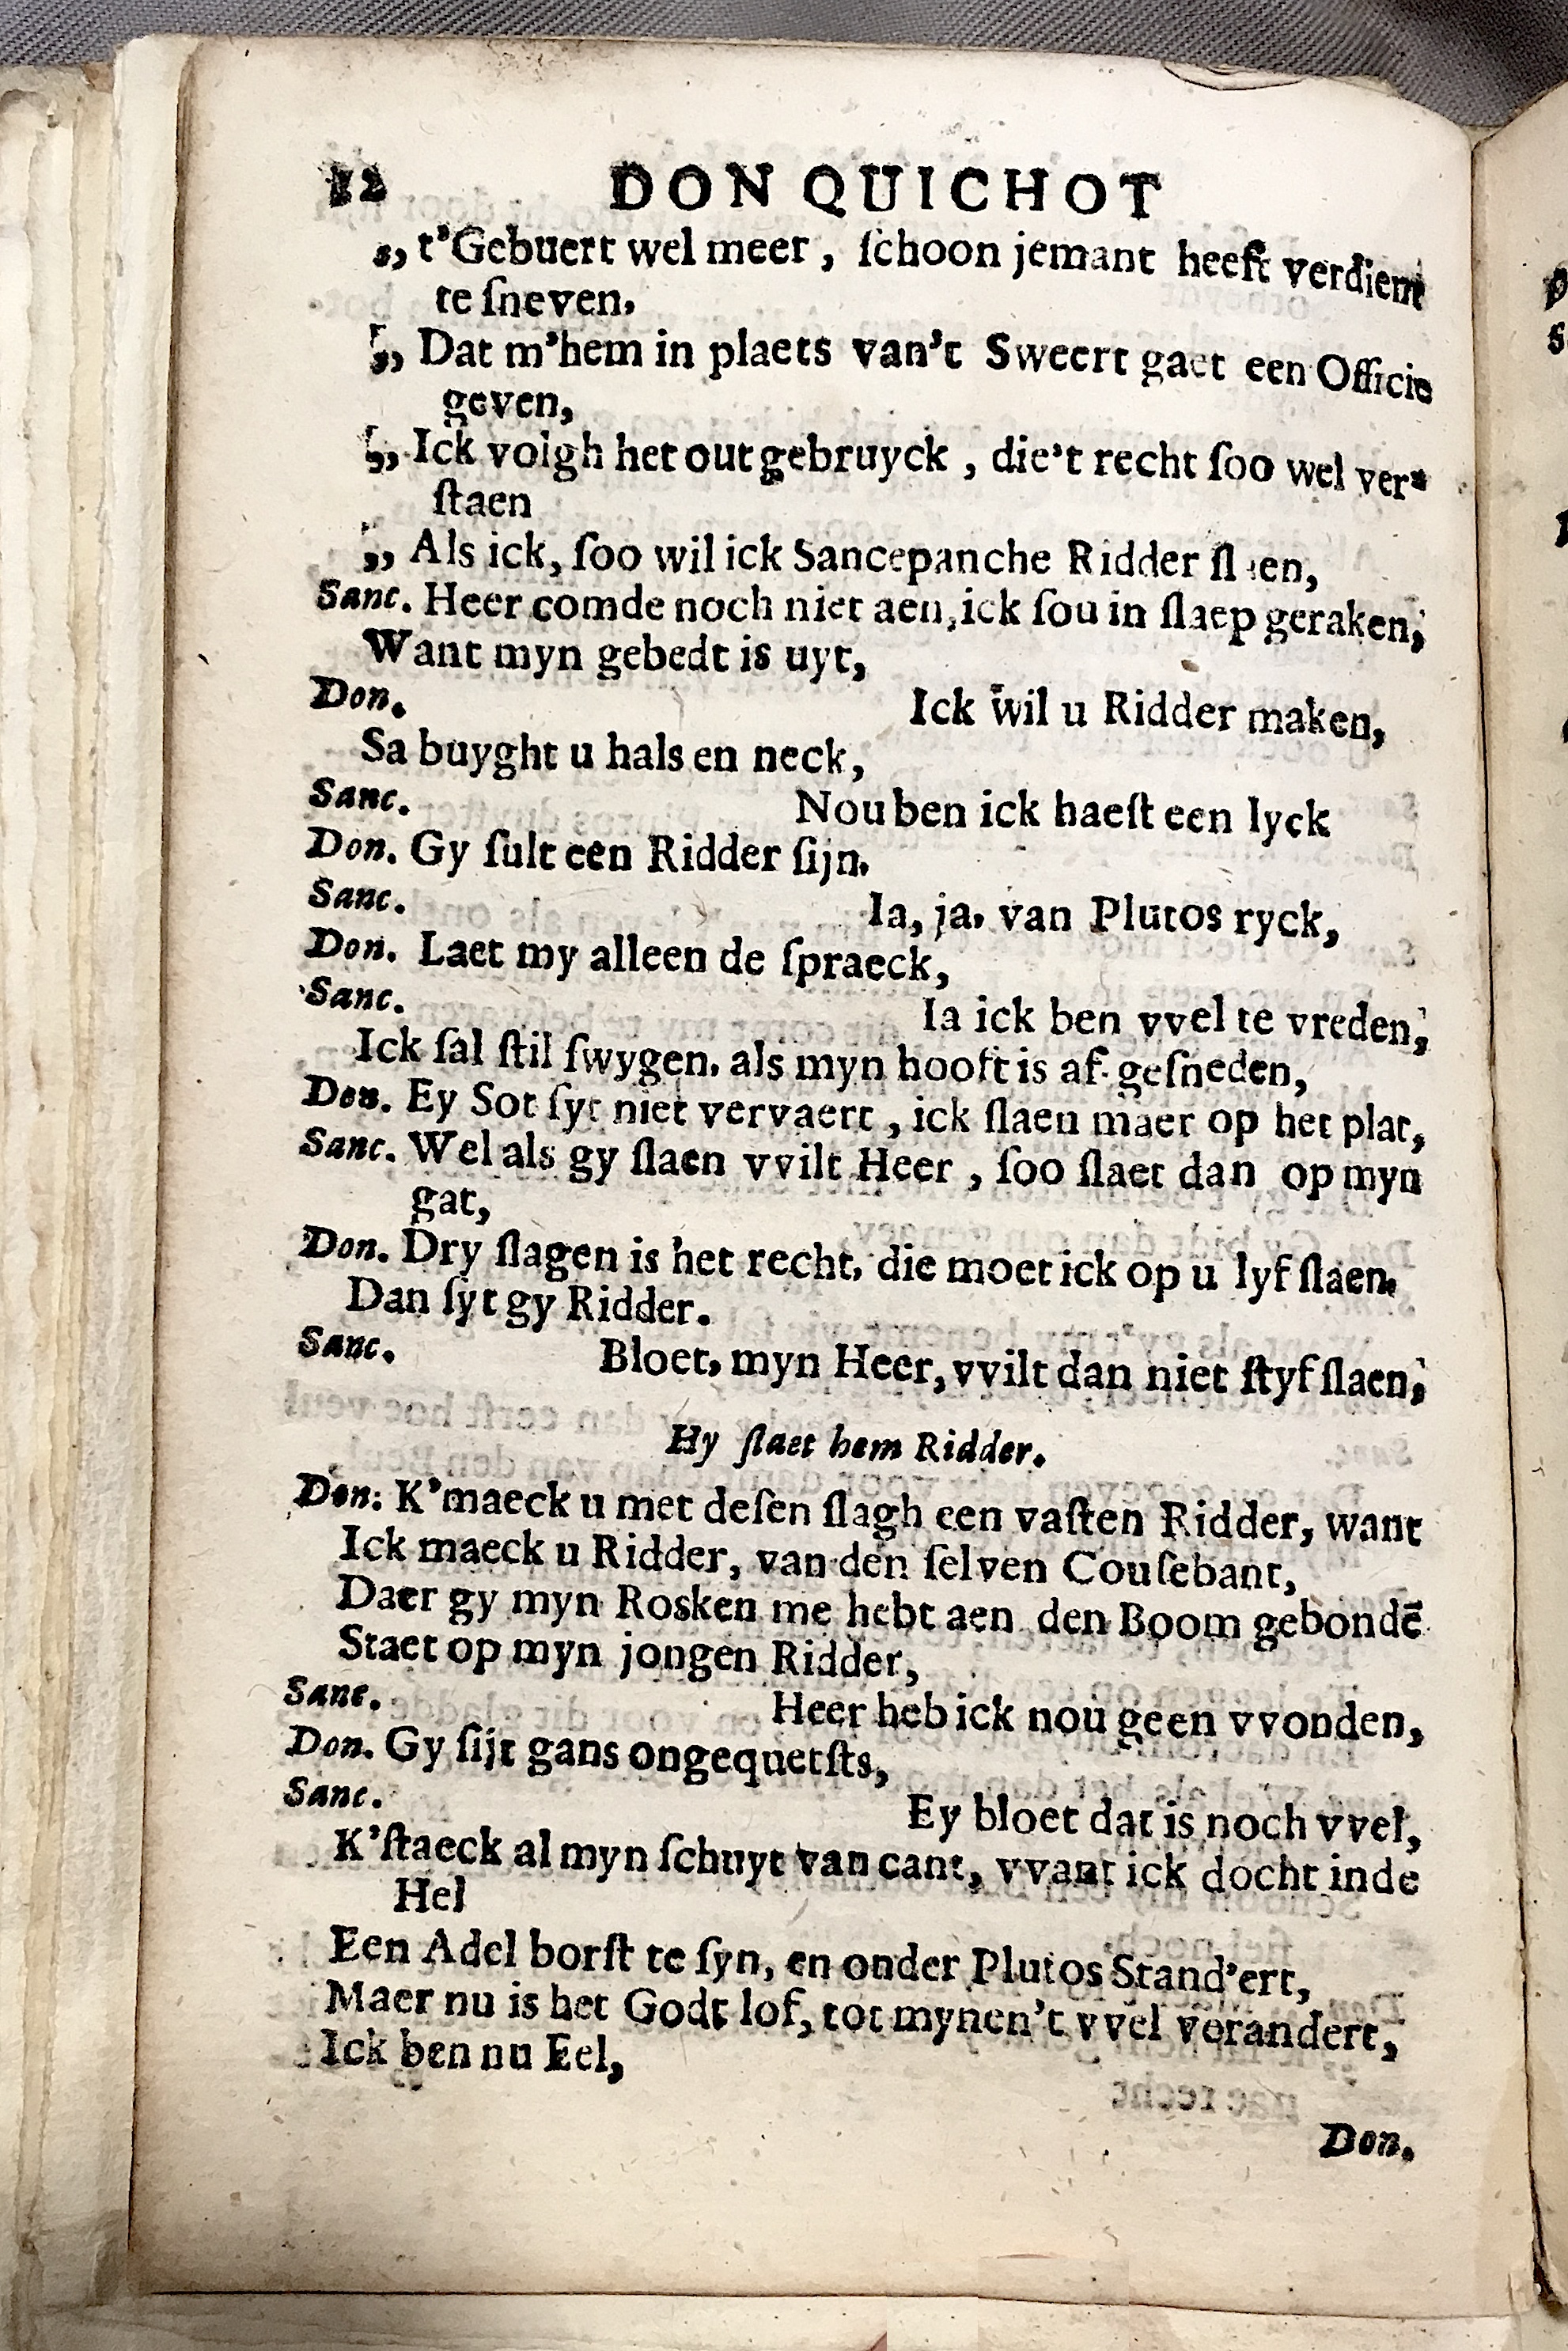 12 DON QUICHOT
„ t'Gebuert wel meer, ſchoon jemant heeft verdient
te ſneven,
„ Dat m'hem in plaets van't Sweert gaet een Officie
geven,
„ Ick volgh het out gebruyck, die't recht ſoo wel ver-
ſtaen
„ Als ick, ſoo wil ick Sancepanche Ridder ſlaen,
Sanc. Heer comde noch niet aen, ick ſou in ſlaep geraken,
Want myn gebedt is uyt,
Don. Ick wil u Ridder maken,
Sa buyght u hals en neck,
Sanc. Nou ben ick haeſt een lyck
Don. Gy ſult een Ridder ſijn.
Sanc. Ia, ja, van Plutos ryck,
Don. Laet my alleen de ſpraeck,
Sanc. Ia ick ben vvel te vreden,
Ick ſal ſtil ſwygen, als myn hooft is af-geſneden,
Don. Ey Sot ſyt niet vervaert, ick ſlaen maer op het plat,
Sanc. Wel als gy ſlaen vvilt Heer, ſoo ſlaet dan op myn
gat,
Don. Dry ſlagen is het recht, die moet ick op u lyf ſlaen,
Dan ſyt gy Ridder.
Sanc. Bloet, myn Heer, vvilt dan niet ſtyf ſlaen,
Hy ſlaet hem Ridder.
Don: K'maeck u met deſen ſlagh een vaſten Ridder, want
Ick maeck u Ridder, van den ſelven Couſebant,
Daer gy myn Rosken me hebt aen den Boom gebondē
Staet op myn jongen Ridder,
Sanc. Heer heb ick nou geen vvonden,
Don. Gy ſijt gans ongequetſts,
Sanc. Ey bloet dat is noch vvel,
K'ſtaeck al myn ſchuyt van cant, vvant ick docht inde
Hel
Een Adel borſt te ſyn, en onder Plutos Stand'ert,
Maer nu is het Godt lof, tot mynen't vvel verandert,
Ick ben nu Eel,
Don.